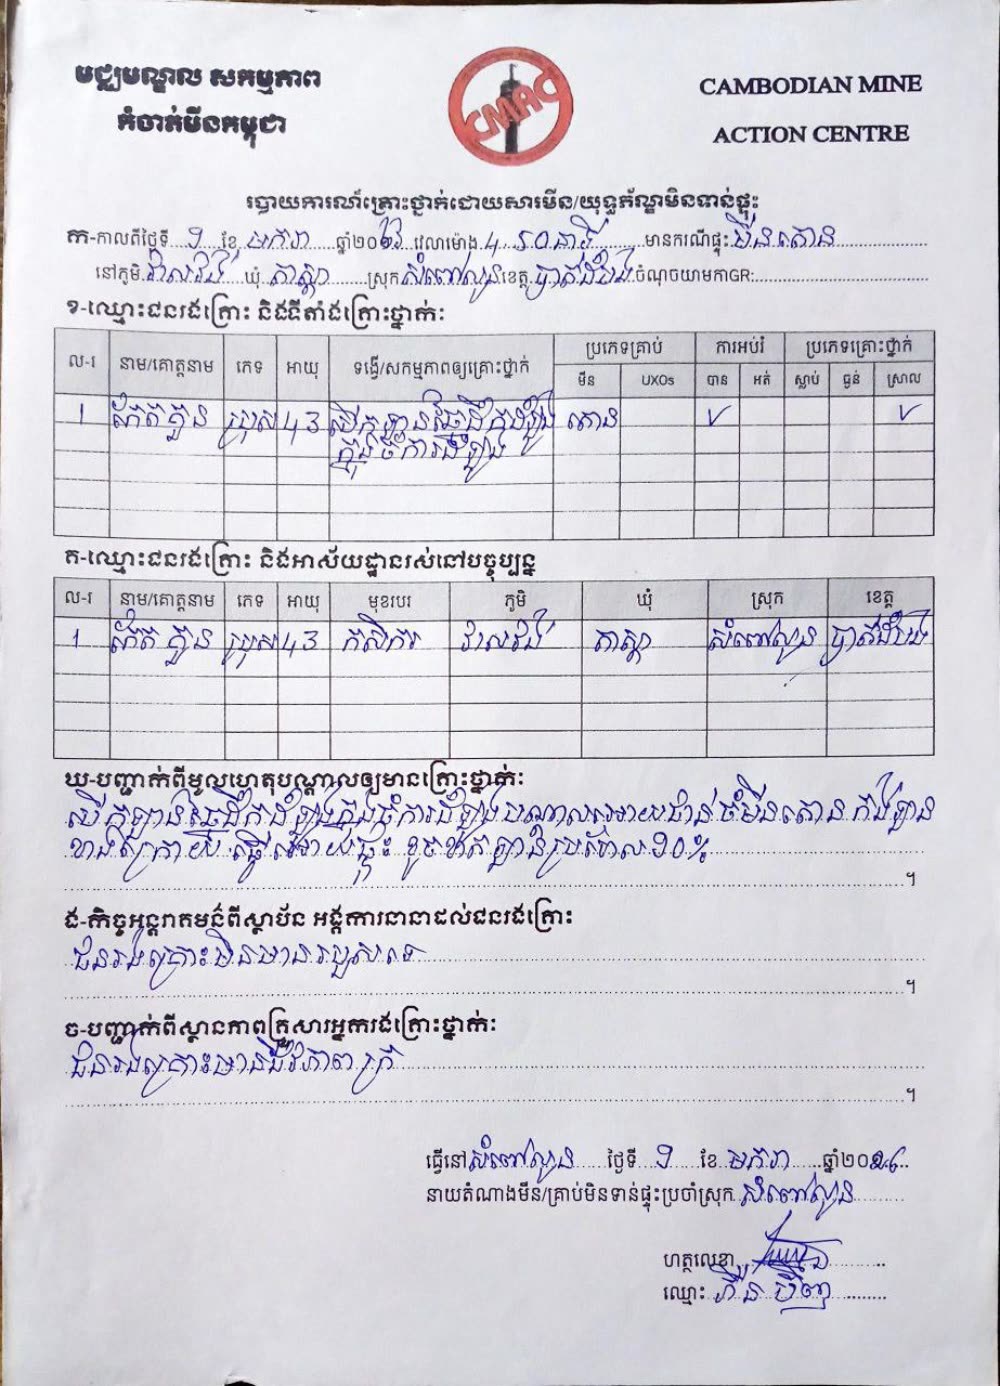 មជ្ឈមណ្ឌល សកម្មភាព
កំចាត់មីនកម្ពុជា
CMAC
CAMBODIAN MINE
ACTION CENTRE
របាយការណ៍គ្រោះថ្នាក់ដោយសារមីន/យុទ្ធភ័ណ្ឌមិនទាន់ផ្ទុះ
ក-កាលពីថ្ងៃទី ១ ខែ មករា ឆ្នាំ២០ វេលាម៉ោង ៤ ៖ ៤០នាទី មានករណីផ្ទុះ មីនតោន
នៅភូមិ វាលវង់ ឃុំ តាស្តា ស្រុក សំពៅលូន ខេត្ត បាត់ដំបង ចំណុចយោមកាGR:
ខ-ឈ្មោះជនរងគ្រោះ និងទីតាំងគ្រោះថ្នាក់:
ល-រ នាម/គោត្តនាម ភេទ អាយុ ទង្វើ/សកម្មភាពឲ្យគ្រោះថ្នាក់ ប្រភេទគ្រាប់ ការអប់រំ ប្រភេទគ្រោះថ្នាក់
មីន UXOs បាន អត់ ស្លាប់ ធ្ងន់ ស្រាល
1 ប្រុស 43 បើកឡាន ដឹកដំឡូង តោន ✓ ✓
ក្នុងចំការដំឡូង
គ-ឈ្មោះជនរងគ្រោះ និងអាស័យដ្ឋានរស់នៅបច្ចុប្បន្ន
ល-រ នាម/គោត្តនាម ភេទ អាយុ មុខរបរ ភូមិ ឃុំ ស្រុក ខេត្ត
1 ប្រុស 43 កសិករ វាលវង់ តាស្តា សំពៅលូន បាត់ដំបង
ឃ-បញ្ជាក់ពីមូលហេតុបណ្តាលឲ្យមានគ្រោះថ្នាក់:
បើកឡាន ដឹកដំឡូងក្នុងចំការដំឡូង បណ្តាលអោយជាន់ចំមីនតោន កង់ឡាន
ខាងក្រោយ ធ្វើអោយផ្ទុះ ខូចខាតឡានប្រហែល ១០%
។
ង-កិច្ចអន្តរាគមន៍ពីស្ថាប័ន អង្គការនានាដល់ជនរងគ្រោះ
ជនរងគ្រោះមិនមានរបួសទេ
។
ច-បញ្ជាក់ពីស្ថានភាពគ្រួសារអ្នករងគ្រោះថ្នាក់:
ជនរងគ្រោះមានជីវភាព ក្រ
។
ធ្វើនៅ សំពៅលូន ថ្ងៃទី ១ ខែ មករា ឆ្នាំ២០២៦
នាយតំណាងមីន/គ្រាប់មិនទាន់ផ្ទុះប្រចាំស្រុក សំពៅលូន
ហត្ថលេខា
ឈ្មោះ